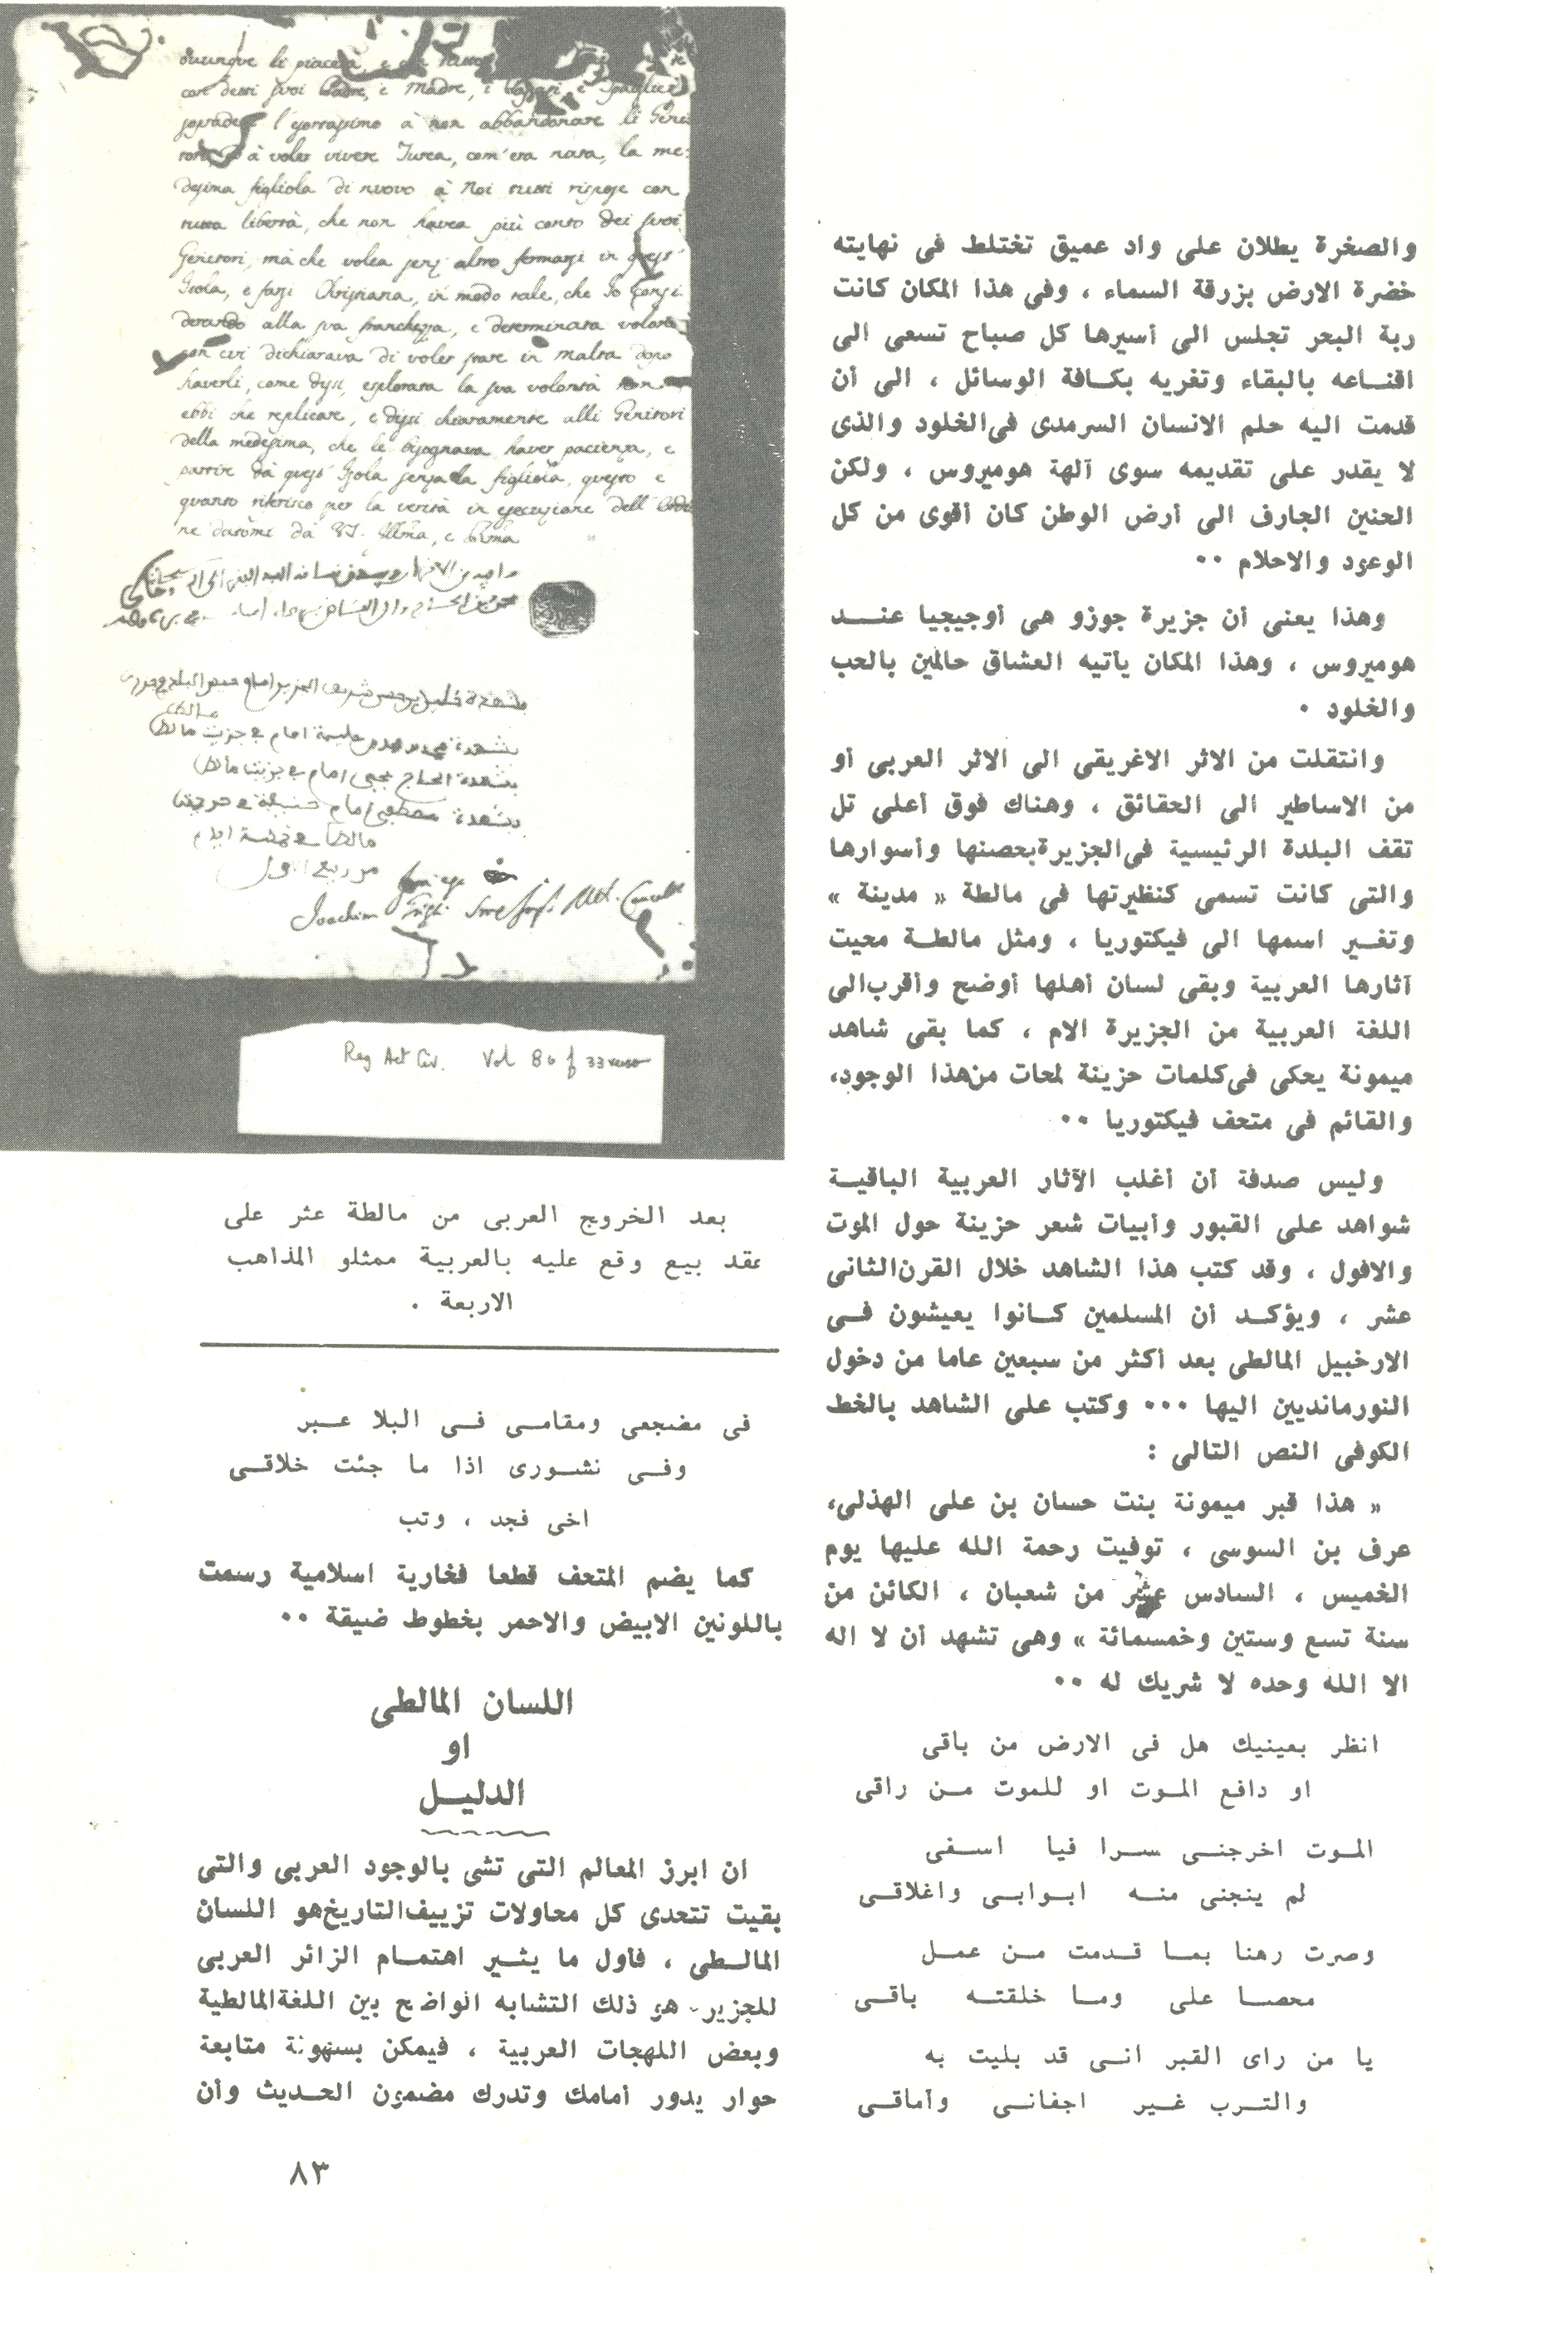 والصخرة يطلان على واد عميق تختلط فى نهايته
خضرة الارض بزرقة السماء ، وفى هذا المكان كانت
ربة البحر تجلس الى أسيرها كل صباح تسعى الى
اقنــاعه بالبقاء وتغريه بكــافة الوسائل ، الى أن
قدمت اليه حلم الانسان السرمدى فى الخلود والذى
لا يقدر على تقديمه سوى آلهة هوميروس ، ولكن
الحنين الجارف الى أرض الوطن كان أقوى من كل
الوعود والاحلام ٠٠
وهذا يعنى أن جزيرة جوزو هى أوجيجيا عنـــد
هوميروس ، وهذا المكان يأتيه العشاق حالمين بالحب
والخلود ٠
وانتقلت من الاثر الاغريقى الى الاثر العربى أو
من الاساطير الى الحقائق ، وهناك فوق أعلى تل
تقف البلدة الرئيسية فى الجزيرة بحصنها وأسوارها
والتى كانت تسمى كنظيرتها فى مالطة « مدينة »
وتغــير اسمها الى فيكتوريا ، ومثل مالطــة محيت
آثارها العربية وبقى لسان أهلها أوضح وأقرب الى
اللغة العربية من الجزيرة الام ، كما بقى شاهد
ميمونة يحكى فى كلمات حزينة لمحات من هذا الوجود،
والقائم فى متحف فيكتوريا ٠٠
وليس صدفة أن أغلب الآثار العربية الباقيــة
شواهد على القبور وأبيات شعر حزينة حول الموت
والافول ، وقد كتب هذا الشاهد خلال القرن الثانى
عشر ، ويؤكــد أن المسلمين كــانوا يعيشون فــى
الارخبيل المالطى بعد أكثر من سبعين عاما من دخول
النورمانديين اليها ٠٠٠ وكتب على الشاهد بالخط
الكوفى النص التالى :
« هذا قبر ميمونة بنت حسان بن على الهذلى،
عرف بن السوسى ، توفيت رحمة الله عليها يوم
الخميس ، السادس عشر من شعبان ، الكائن من
سنة تسع وستين وخمسمائة » وهى تشهد أن لا اله
الا الله وحده لا شريك له ٠٠
انظر بعينيك هل فى الارض من باقى
او دافع المـوت او للموت مـن راقى
المـوت اخرجنـى سـرا فيا اسـفى
لم ينجنى منـه ابـوابـى واغلاقـى
وصرت رهنا بمـا قـدمت مـن عمـل
محصـا على ومـا خلقتـه باقـى
يا من راى القبر انـى قد بليت به
والتـرب غـير اجفانـى وأماقـى
ouunque li piacerà, e
con detti suoi Padre, e Madre,
l'esortassimo à non abbandonare li Geni
à voler vivere Turca, com'era nata, la me:
desima figliola di nuovo à Noi tutti rispose con
tutta libertà, che non havea più conto dei suoi
Genitori, mà che volea senz'altro fermarsi in quest'
Isola, e farsi Christiana, in modo tale, che Io consi
derando alla sua franchezza, e determinata volontà
con cui dichiarava di voler stare in Malta dopo
haverli, come dissi, esplorata la sua volontà non
ebbi che replicare, e dissi chiaramente alli Genitori
della medesima, che le bisognava haver pacienza, e
partire dà quest'Isola senza la figliola, questo è
quanto riferisco per la verità in esecuzione dell'Ordi
ne datomi dà
امام فى جزيت مالطا
بشهدة الحاج يحيى امام فى جزيتا مالطا
بشهدة مصطفى امام
من ربيع الاول
Joachim
Reg Act Civ. Vol 86 f 33 verso
بعد الخروج العربى من مالطة عثر على
عقد بيع وقع عليه بالعربية ممثلو المذاهب
الاربعة .
فى مضجعى ومقامـى فـى البلا عـبر
وفـى نشـورى اذا ما جئت خلاقـى
اخى فجد ، وتب
كما يضم المتحف قطعا فخارية اسلامية رسمت
باللونين الابيض والاحمر بخطوط ضيقة ٠٠
اللسان المالطى
او
الدليـل
ان ابرز المعالم التى تشى بالوجود العربى والتى
بقيت تتحدى كل محاولات تزييف التاريخ هو اللسان
المالـطى ، فأول ما يثـير اهتمـام الزائر العربى
للجزير هو ذلك التشابه الواضح بين اللغة المالطية
وبعض اللهجات العربية ، فيمكن بسهولة متابعة
حوار يدور أمامك وتدرك مضمون الحـديث وأن
٨٣